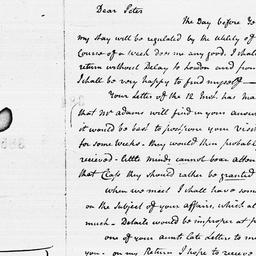 Dear Peter
The Day before
my stay will be regulated by the Utility of
Course of a week does me any good. I shall
return without Delay to London and from
I shall be very happy to find myself —
Your Letter of the 12 Inst. has
that Mr Adams will find in your
it would be best to postpone your
for some weeks. they would then, probably
recieved - little minds cannot bear
that Class they should rather be granted
when we meet I shall have some
on the subject of your affairs, which at
much - Details would be improper at
one of your aunts late Letters to
you - on my Return I hope to receive